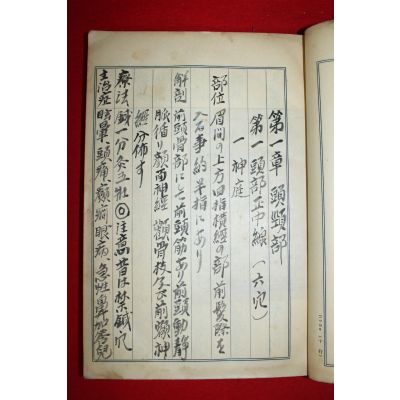 第一章 頭頸部
第一 頭部正中線（六穴）
一 神庭
部位 眉間の上方四指横徑の部 前髪際を
入る事約半指にあり
解剖 前頭骨部にして前頭筋あり前頭動静
脈循り顔面神經顴骨枝及前額神
經分佈す
療法 鍼一分灸五壯 ◎注意 昔は禁鍼穴
主治症 眩暈、頭痛、癲癇、眼病、急性鼻加答兒